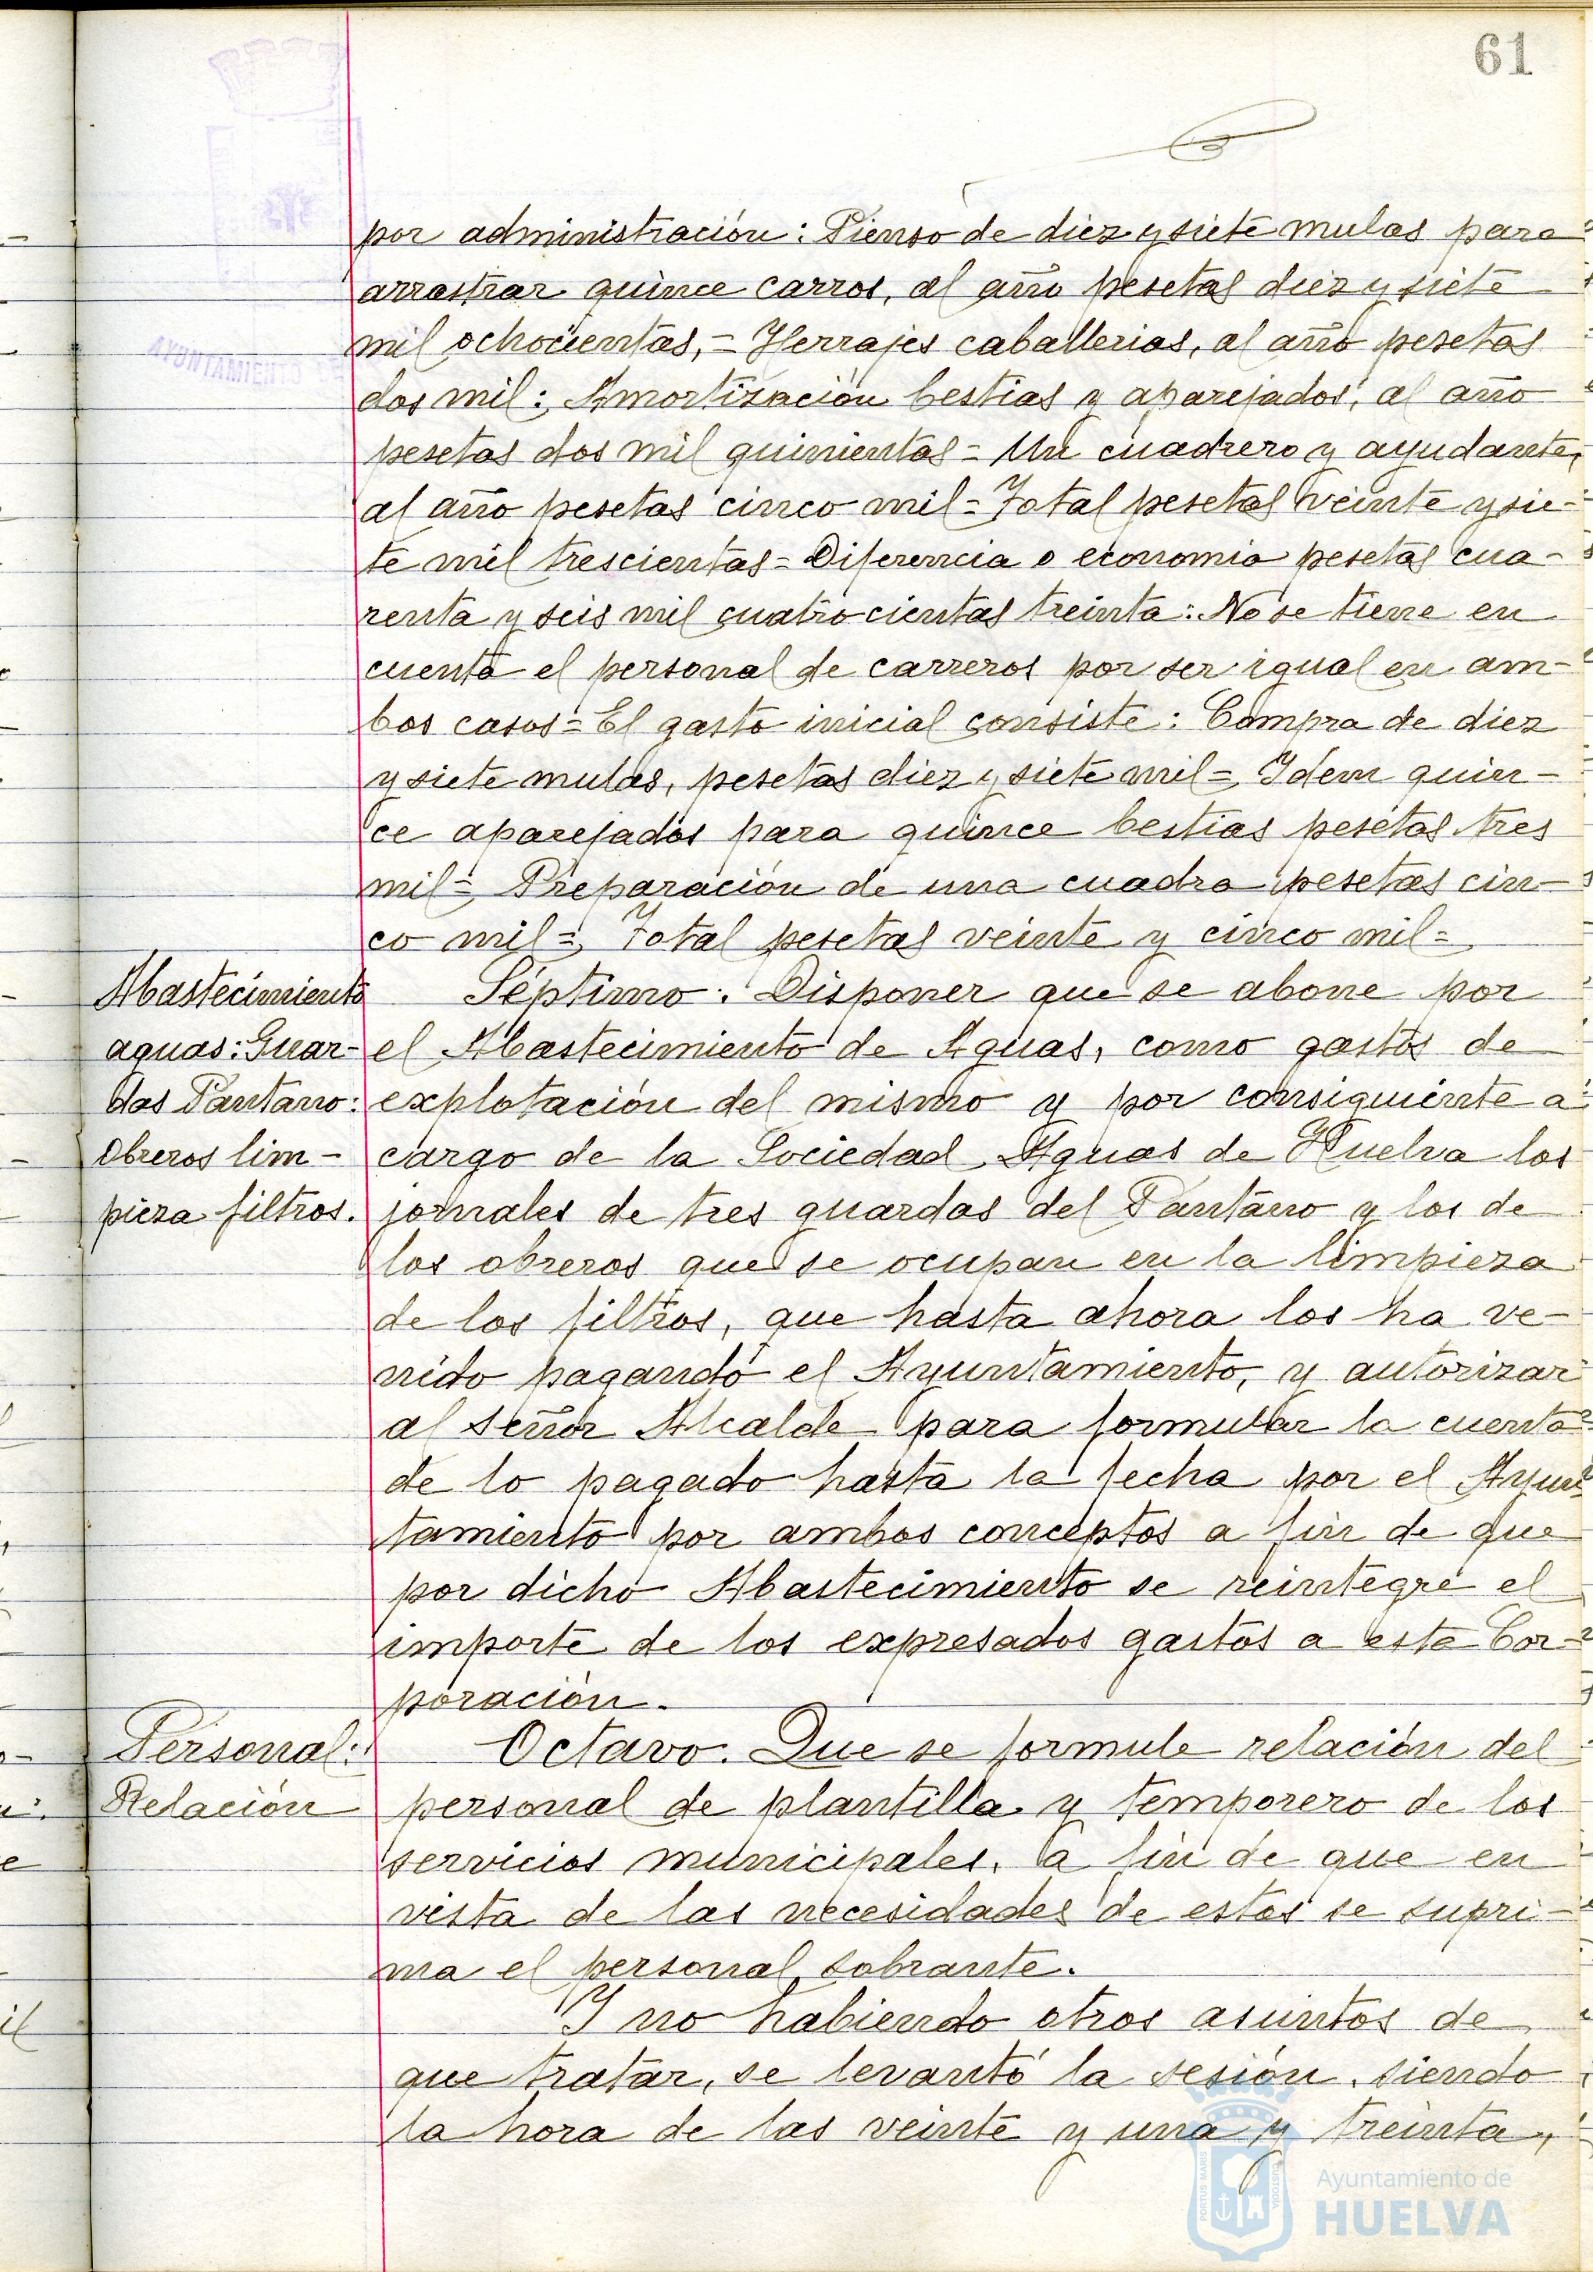 61
por administración: Pienso de diez y siete mulas para
arrastrar quince carros, al año pesetas diez y siete
mil ochocientas,= Herrajes caballerias, al año pesetas
dos mil: Amortización bestias y aparejados, al año
pesetas dos mil quinientas= Un cuadrero y ayudante,
al año pesetas cinco mil= Total pesetas veinte y sie-
te mil trescientas= Diferencia o economia pesetas cua-
renta y seis mil cuatrocientas treinta: No se tiene en
cuenta el personal de carreros por ser igual en am-
bos casos= El gasto inicial consiste: Compra de diez
y siete mulas, pesetas diez y siete mil= Idem quin-
ce aparejados para quince bestias pesetas tres
mil= Preparación de una cuadra pesetas cin-
co mil= Total pesetas veinte y cinco mil=
Abastecimiento
aguas: Guar-
das Pantano:
Obreros lim-
pieza filtros.
Séptimo: Disponer que se abone por
el Abastecimiento de Aguas, como gastos de
explotación del mismo y por consiguiente a
cargo de la Sociedad Aguas de Huelva los
jornales de tres guardas del Pantano y los de
los obreros que se ocupan en la limpieza
de los filtros, que hasta ahora los ha ve-
nido pagando el Ayuntamiento, y autorizar
al señor Alcalde para formular la cuenta
de lo pagado hasta la fecha por el Ayun-
tamiento por ambos conceptos a fin de que
por dicho Abastecimiento se reintegre el
importe de los expresados gastos a esta Cor-
poración.
Personal:
Relación
Octavo. Que se formule relación del
personal de plantilla y temporero de los
servicios municipales, a fin de que en
vista de las necesidades de estos se supri-
ma el personal sobrante.
Y no habiendo otros asuntos de
que tratar, se levantó la sesión, siendo
la hora de las veinte y una y treinta,
AYUNTAMIENTO DE
PORTUS MARIS
CUSTODIA
Ayuntamiento de
HUELVA